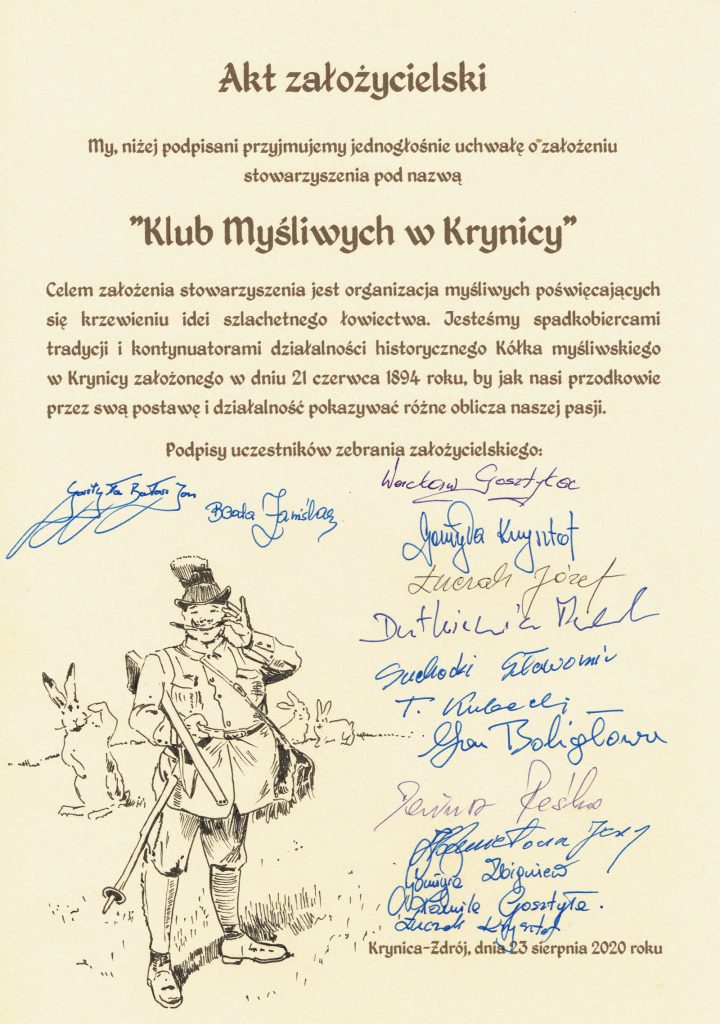 Akt założycielski
My, niżej podpisani przyjmujemy jednogłośnie uchwałę o założeniu
stowarzyszenia pod nazwą
"Klub Myśliwych w Krynicy"
Celem założenia stowarzyszenia jest organizacja myśliwych poświęcających
się krzewieniu idei szlachetnego łowiectwa. Jesteśmy spadkobiercami
tradycji i kontynuatorami działalności historycznego Kółka myśliwskiego
w Krynicy założonego w dniu 21 czerwca 1894 roku, by jak nasi przodkowie
przez swą postawę i działalność pokazywać różne oblicza naszej pasji.
Podpisy uczestników zebrania założycielskiego:
Wacław Gosztyła
Jan
Beata
Krzysztof
Żuczak Józef
Dutkiewicz
Suchocki Sławomir
T. Kubacki
Boligłowa
Dariusz Reśko
Jerzy
Zbigniew
Kamila Gosztyła.
Żuczek Krzysztof
Krynica-Zdrój, dnia 23 sierpnia 2020 roku